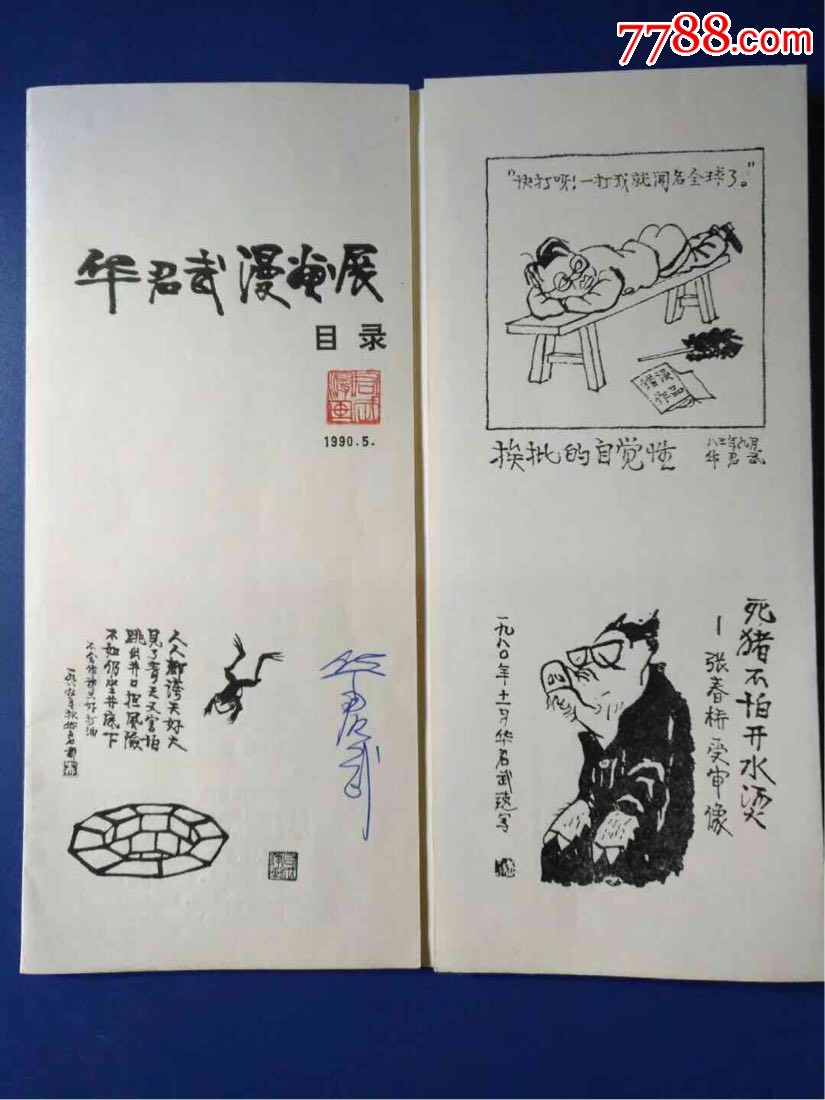 7788.com
华君武漫画展
目录
1990.5.
人人都夸天好大
见了青天又害怕
跳出井口担风险
不如仍坐井底下
不会作诗只好打油
华君武
"快打呀!一打我就闻名全球了。"
错误
作品
挨批的自觉性
八二年九月
华君武
死猪不怕开水烫
—张春桥受审像
一九八〇年十二月华君武